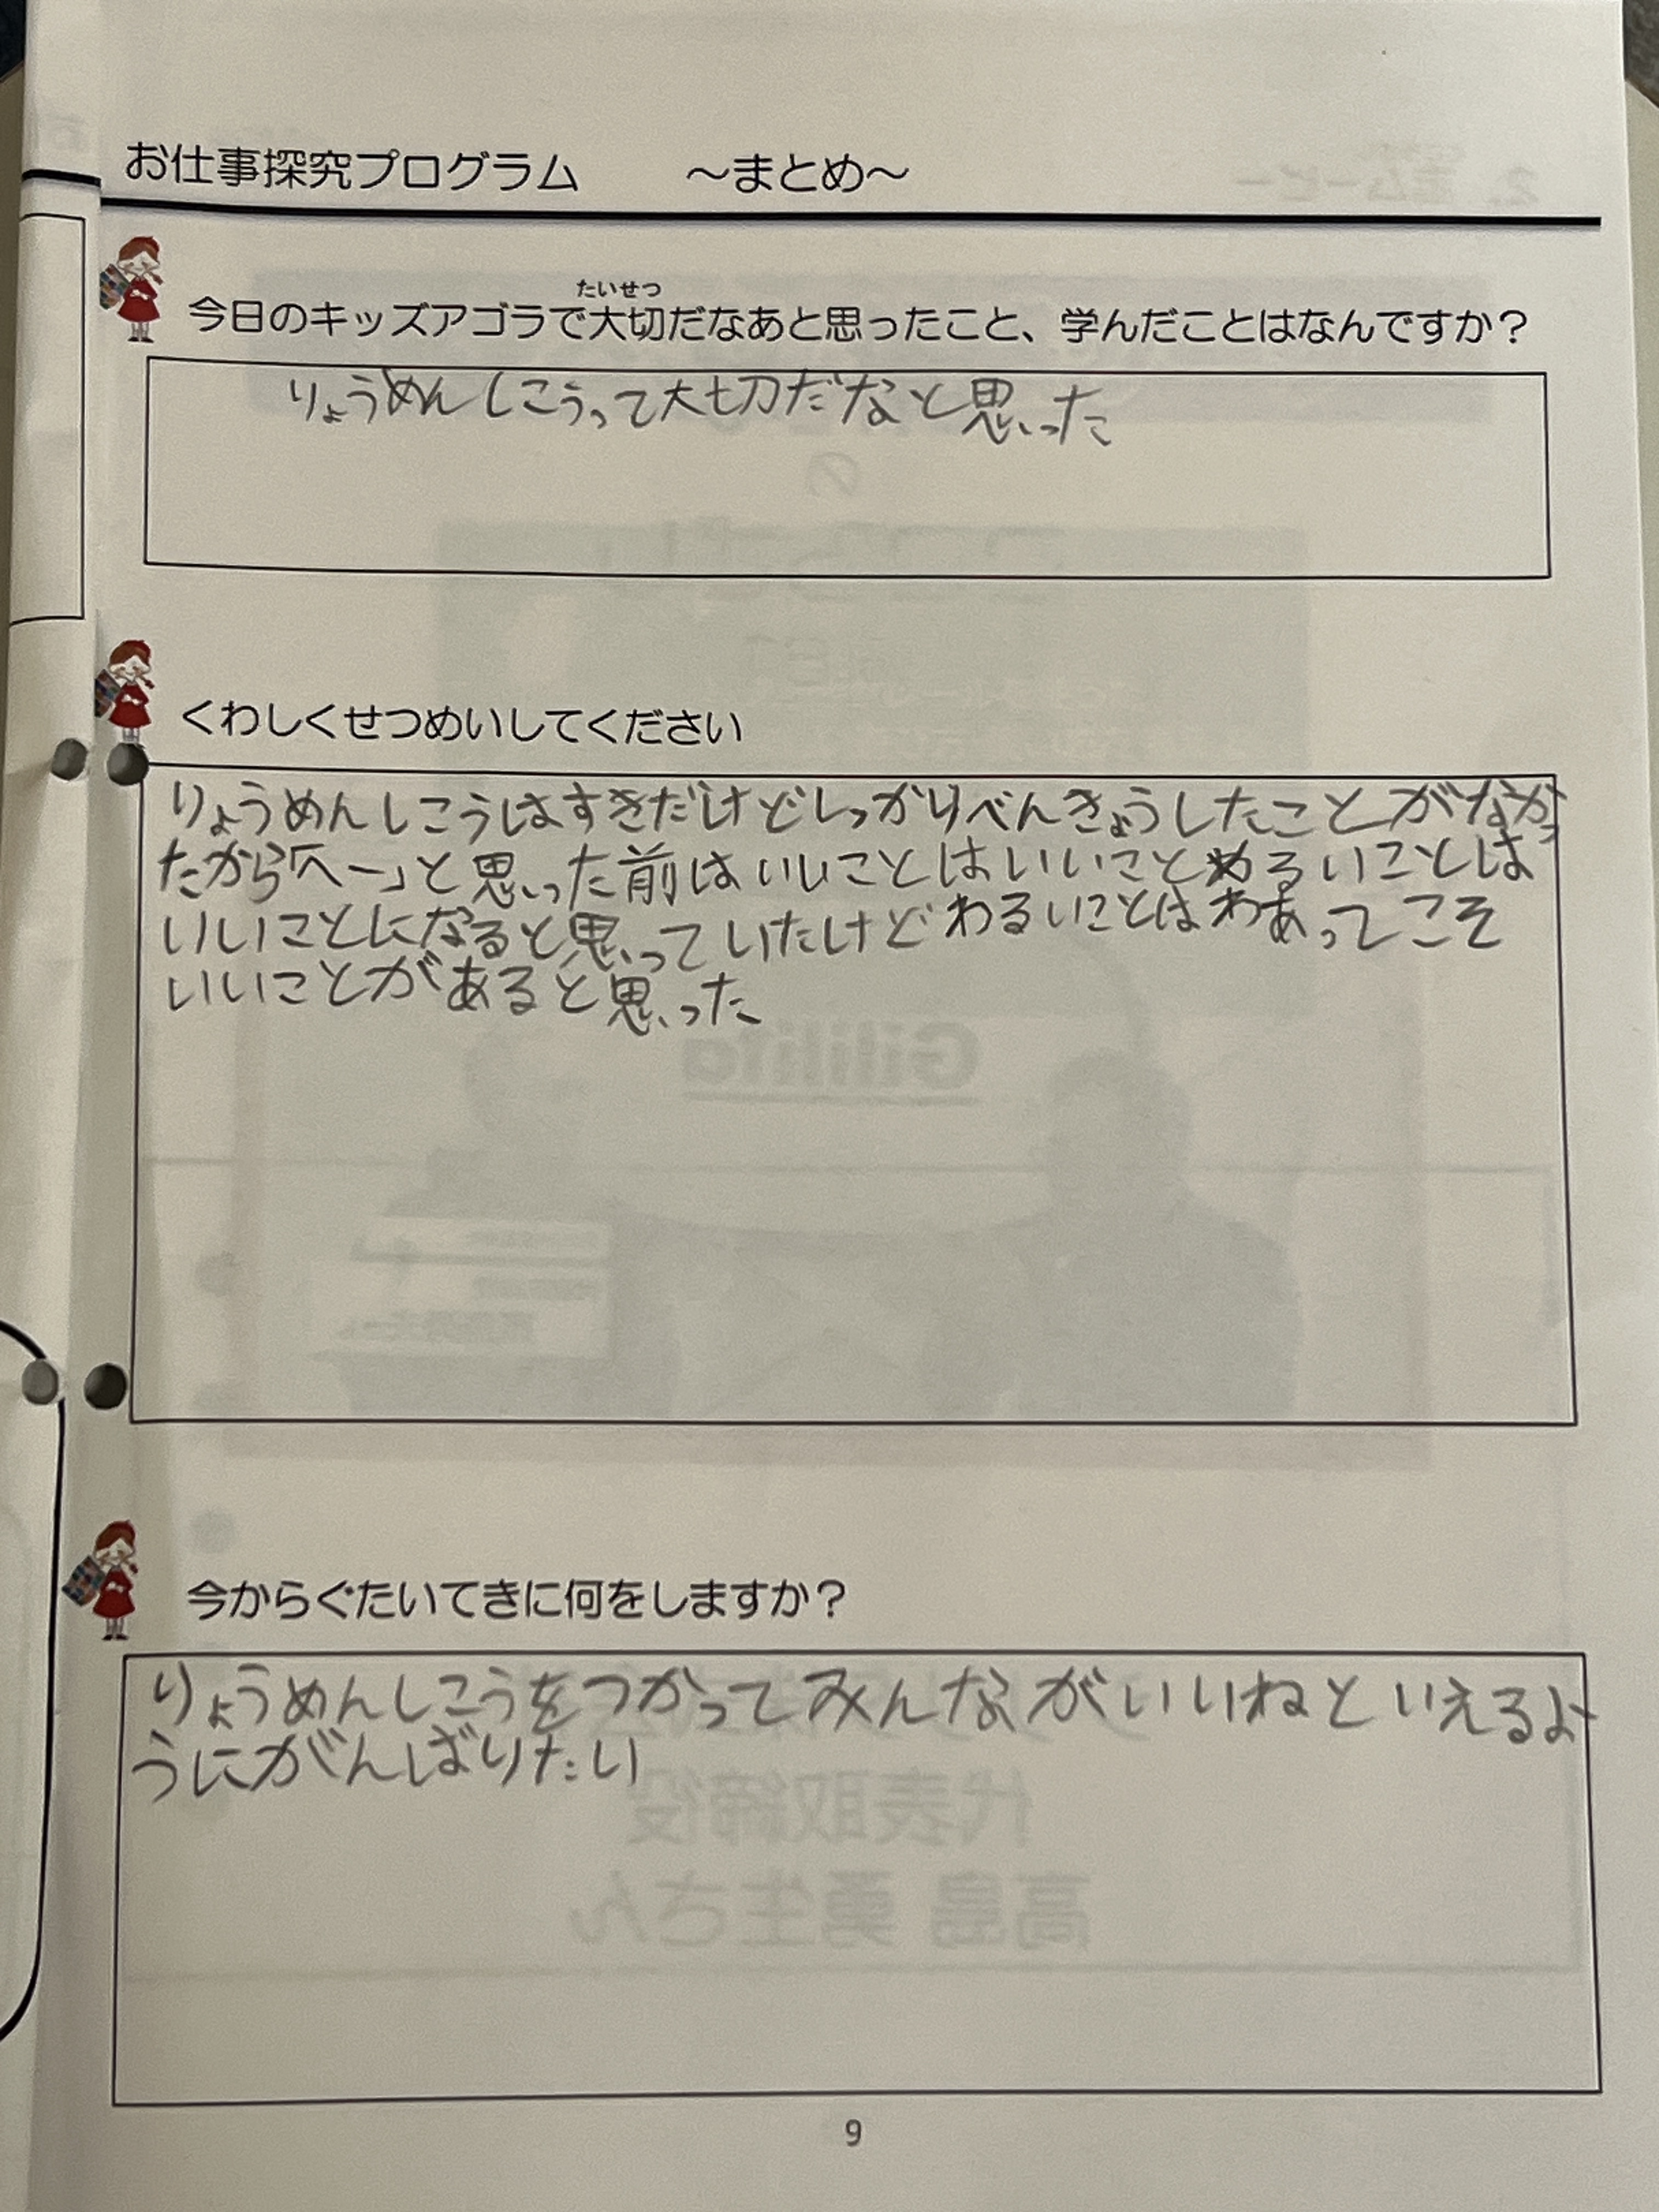 お仕事探究プログラム　　～まとめ～
たいせつ
今日のキッズアゴラで大切だなあと思ったこと、学んだことはなんですか？
りょうめんしこうって大切だなと思った
くわしくせつめいしてください
りょうめんしこうはすきだけどしっかりべんきょうしたことがなかっ
たから「へー」と思った前はいいことはいいことわるいことは
いいことになると思っていたけどわるいことはあってこそ
いいことがあると思った
今からぐたいてきに何をしますか？
りょうめんしこうをつかってみんながいいねといえるよ
うにがんばりたい
9